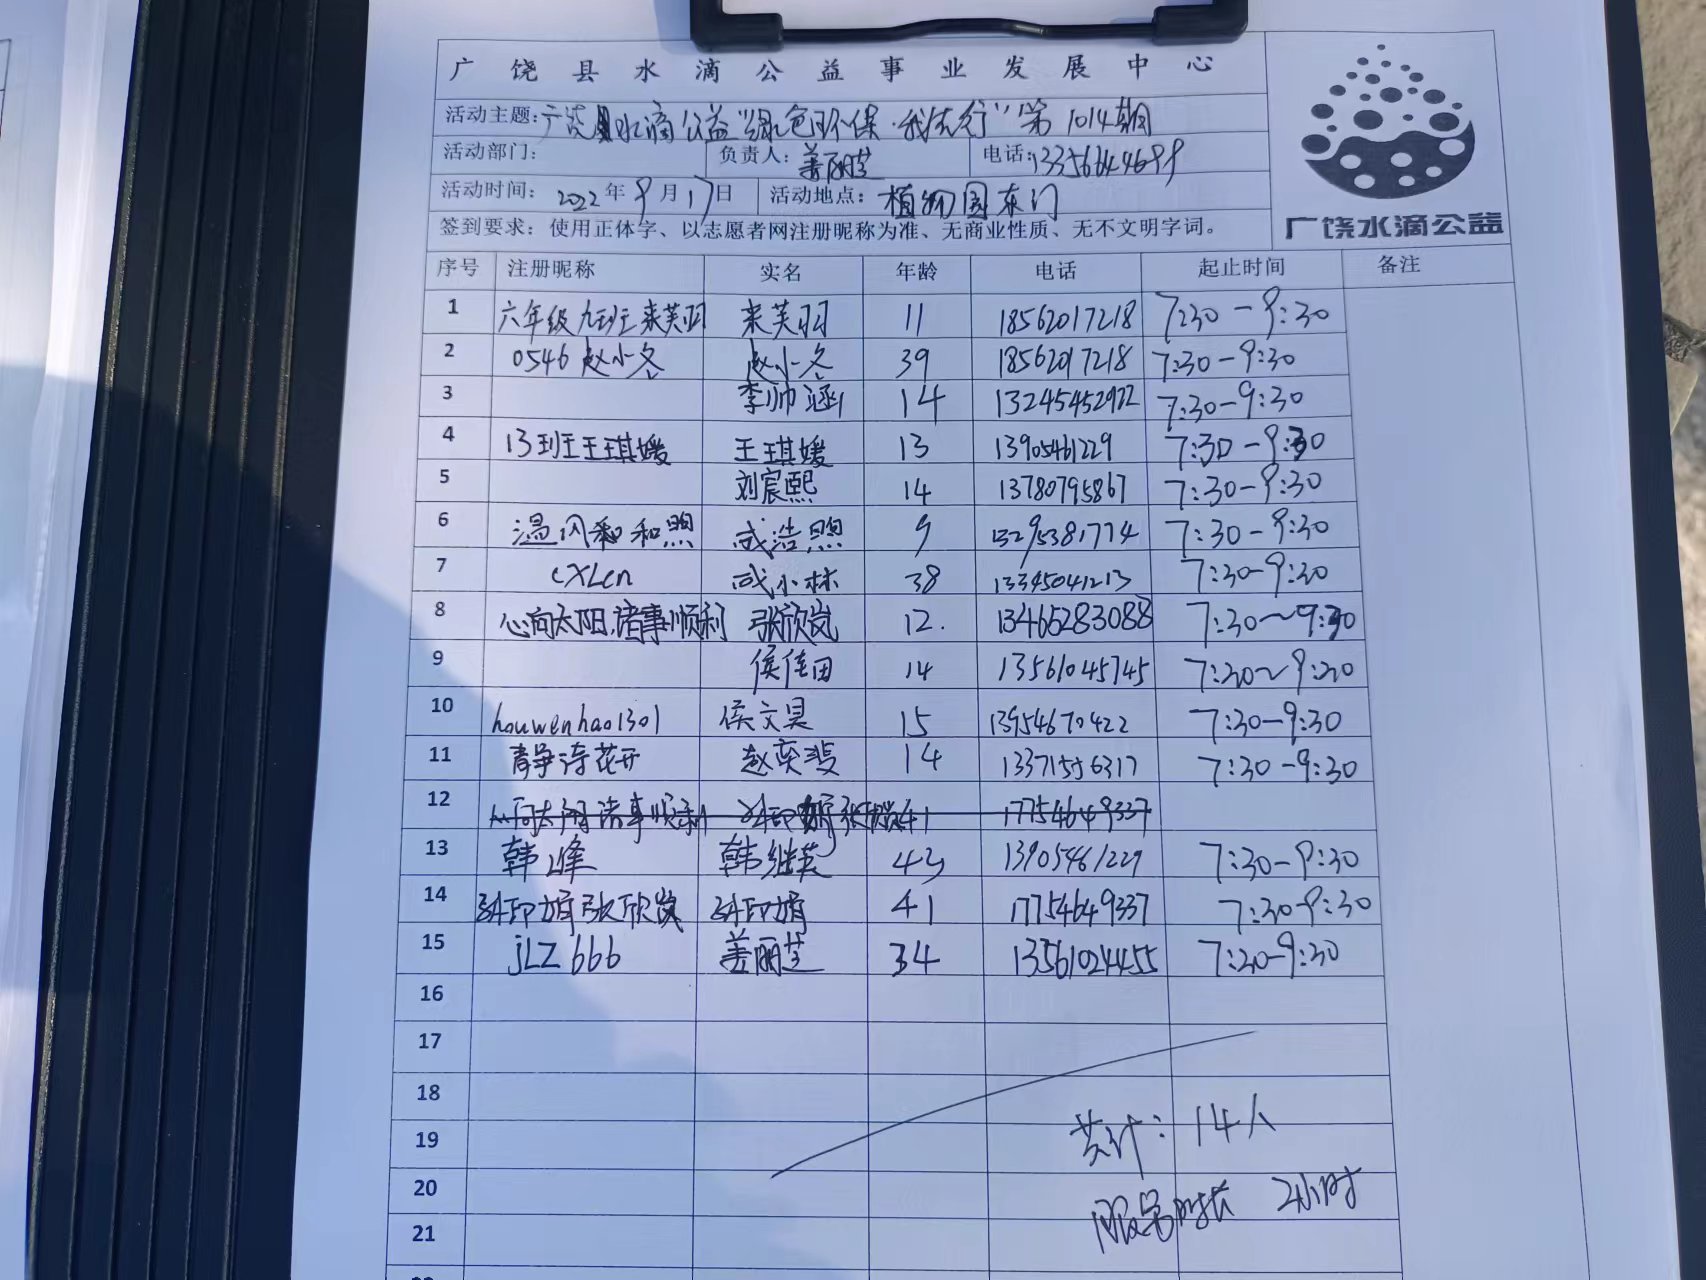 广饶县水滴公益事业发展中心
活动主题:广饶县水滴公益“绿色环保·我先行”第1014期
活动部门: 负责人:姜丽芝 电话:13356644699
活动时间: 2022年9月17日 活动地点: 植物园东门
签到要求: 使用正体字、以志愿者网注册昵称为准、无商业性质、无不文明字词。
广饶水滴公益
序号 注册昵称 实名 年龄 电话 起止时间 备注
1 六年级九班 来芙羽 来芙羽 11 18562017218 7:30-9:30
2 0546赵小冬 赵小冬 39 18562017218 7:30-9:30
3 李帅涵 14 13245452922 7:30-9:30
4 13班王琪媛 王琪媛 13 13905461229 7:30-9:30
5 刘宸熙 14 13780795867 7:30-9:30
6 和煦 成浩煦 9 13295381774 7:30-9:30
7 cXLcn 成小林 38 13345041213 7:30-9:30
8 心向太阳,诸事顺利 张欣岚 12. 13465283088 7:30~9:30
9 侯佳田 14 13561045745 7:30~9:30
10 houwenhao1301 侯文昊 15 13954670422 7:30-9:30
11 静待花开 赵奕斐 14 13371556317 7:30-9:30
12 心向太阳诸事顺利 41 17754649337
13 韩峰 韩继英 43 13905461229 7:30-9:30
14 张欣岚 41 17754649337 7:30-9:30
15 jLZ666 姜丽芝 34 13561024455 7:30-9:30
16
17
18
19 共计: 14人
20 服务时长 2小时
21